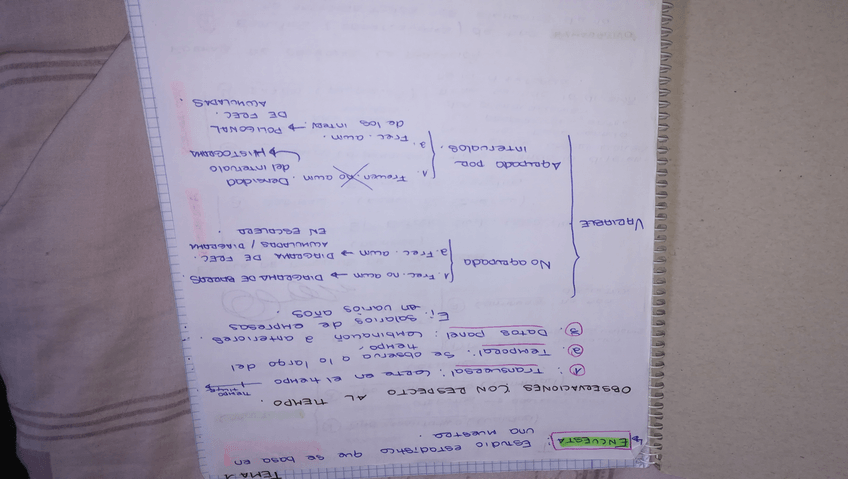 TEMA 1
↳ ENCUESTA: Estudio estadístico que se basa en
una muestra.
OBSERVACIONES CON RESPECTO AL TIEMPO.
① Transversal: Corte en el tiempo
tiempo
② Temporal: Se observa a lo largo del
tiempo.
③ Datos panel: Combinación 2 anteriores.
Ej: salarios de empresas
en varios años.
VARIABLE
No agrupada
1. Frec. no acum → DIAGRAMA DE BARRAS.
2. Frec. acum → DIAGRAMA DE FREC.
ACUMULADAS / DIAGRAMA
EN ESCALERA.
Agrupado por
intervalos.
1. Frecuen. no acum. Densidad
del intervalo
→ HISTOGRAMA
2. Frec. acum.
de los interv. → POLIGONAL
DE FREC.
ACUMULADAS.